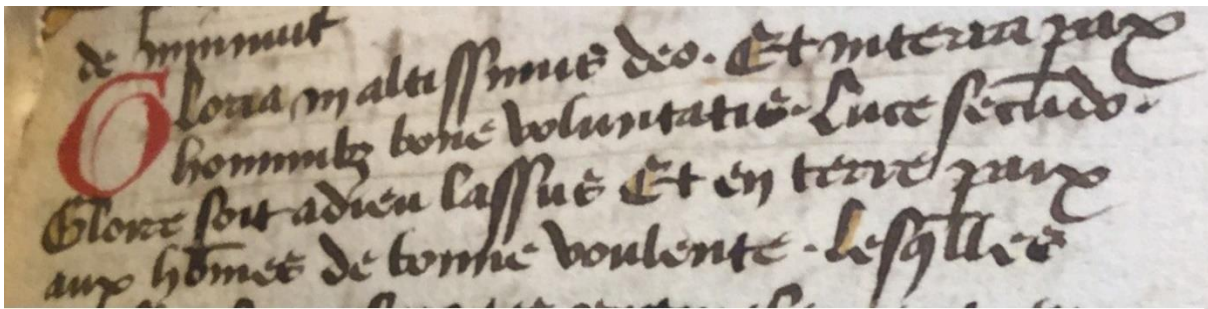 de minuit
Gloria in altissimis deo. Et in terra pax
hominibꝫ bone voluntatis. Luce secūdo.
Gloire soit a dieu lassus Et en terre paix
aux hōmes de bonne voulente. Lesq̄lles